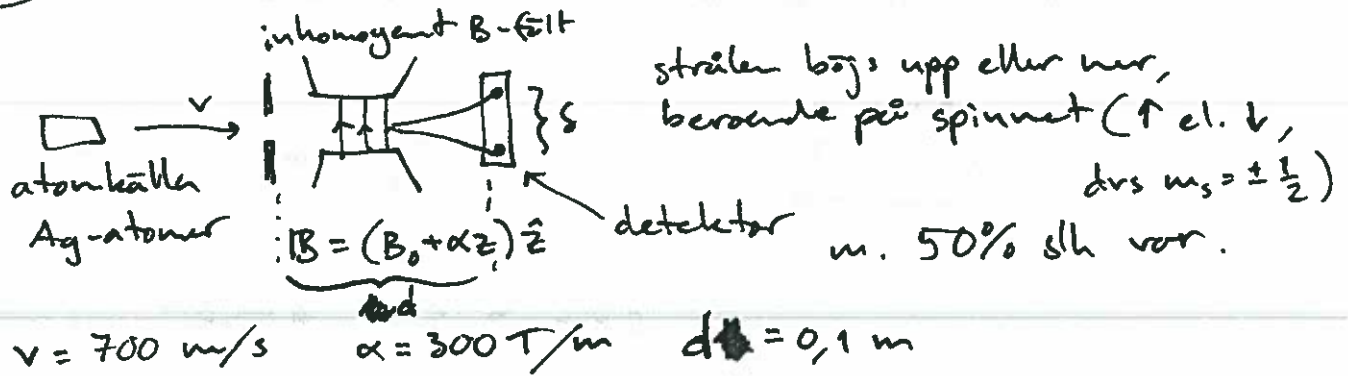 inhomogent B-fält
strålen böjs upp eller ner,
beroende på spinnet (↑ el. ↓,
dvs mₛ = ± 1/2)
m. 50% slh var.
v
δ
atomkälla
Ag-atomer
B = (B₀ + αz) ẑ
detektor
d
v = 700 m/s α = 300 T/m d = 0,1 m